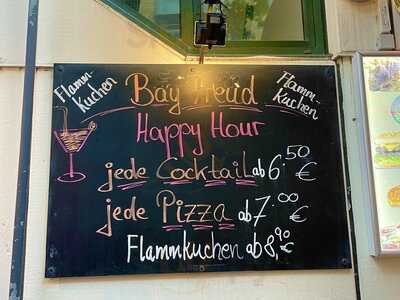 Flamm-
kuchen
Flamm-
kuchen
Bay Freud
Happy Hour
jede Cocktail ab 6.50 €
jede Pizza ab 7.00 €
Flammkuchen ab 8,90 €